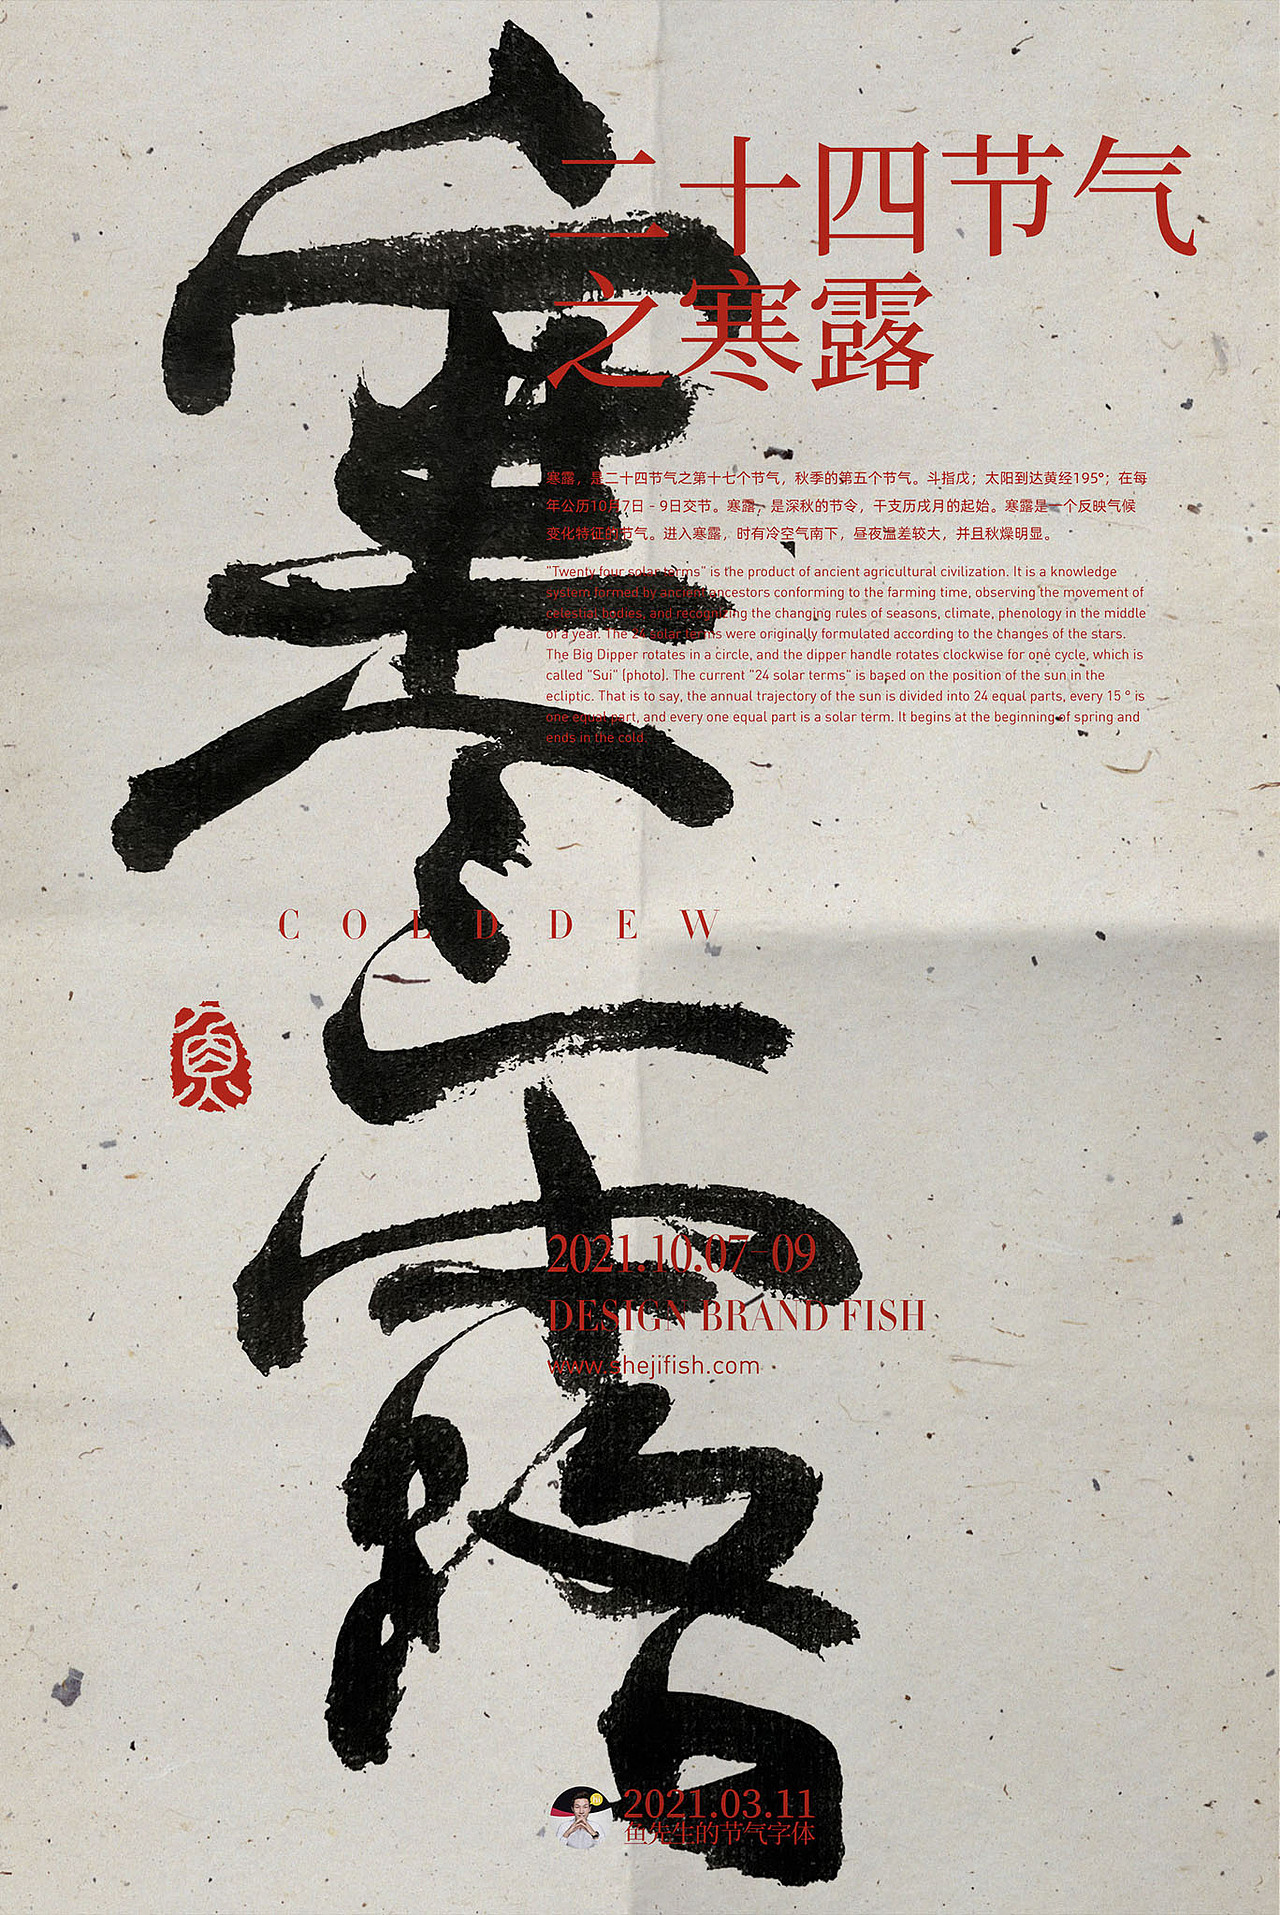 寒露
二十四节气
之寒露
寒露，是二十四节气之第十七个节气，秋季的第五个节气。斗指戊；太阳到达黄经195°；在每
年公历10月7日-9日交节。寒露，是深秋的节令，干支历戌月的起始。寒露是一个反映气候
变化特征的节气。进入寒露，时有冷空气南下，昼夜温差较大，并且秋燥明显。
"Twenty four solar terms" is the product of ancient agricultural civilization. It is a knowledge
system formed by ancient ancestors conforming to the farming time, observing the movement of
celestial bodies, and recognizing the changing rules of seasons, climate, phenology in the middle
of a year. The 24 solar terms were originally formulated according to the changes of the stars.
The Big Dipper rotates in a circle, and the dipper handle rotates clockwise for one cycle, which is
called "Sui" (photo). The current "24 solar terms" is based on the position of the sun in the
ecliptic. That is to say, the annual trajectory of the sun is divided into 24 equal parts, every 15 ° is
one equal part, and every one equal part is a solar term. It begins at the beginning of spring and
ends in the cold
COLD DEW
魚
2021.10.07-09
DESIGN BRAND FISH
www.shejifish.com
2021.03.11
鱼先生的节气字体